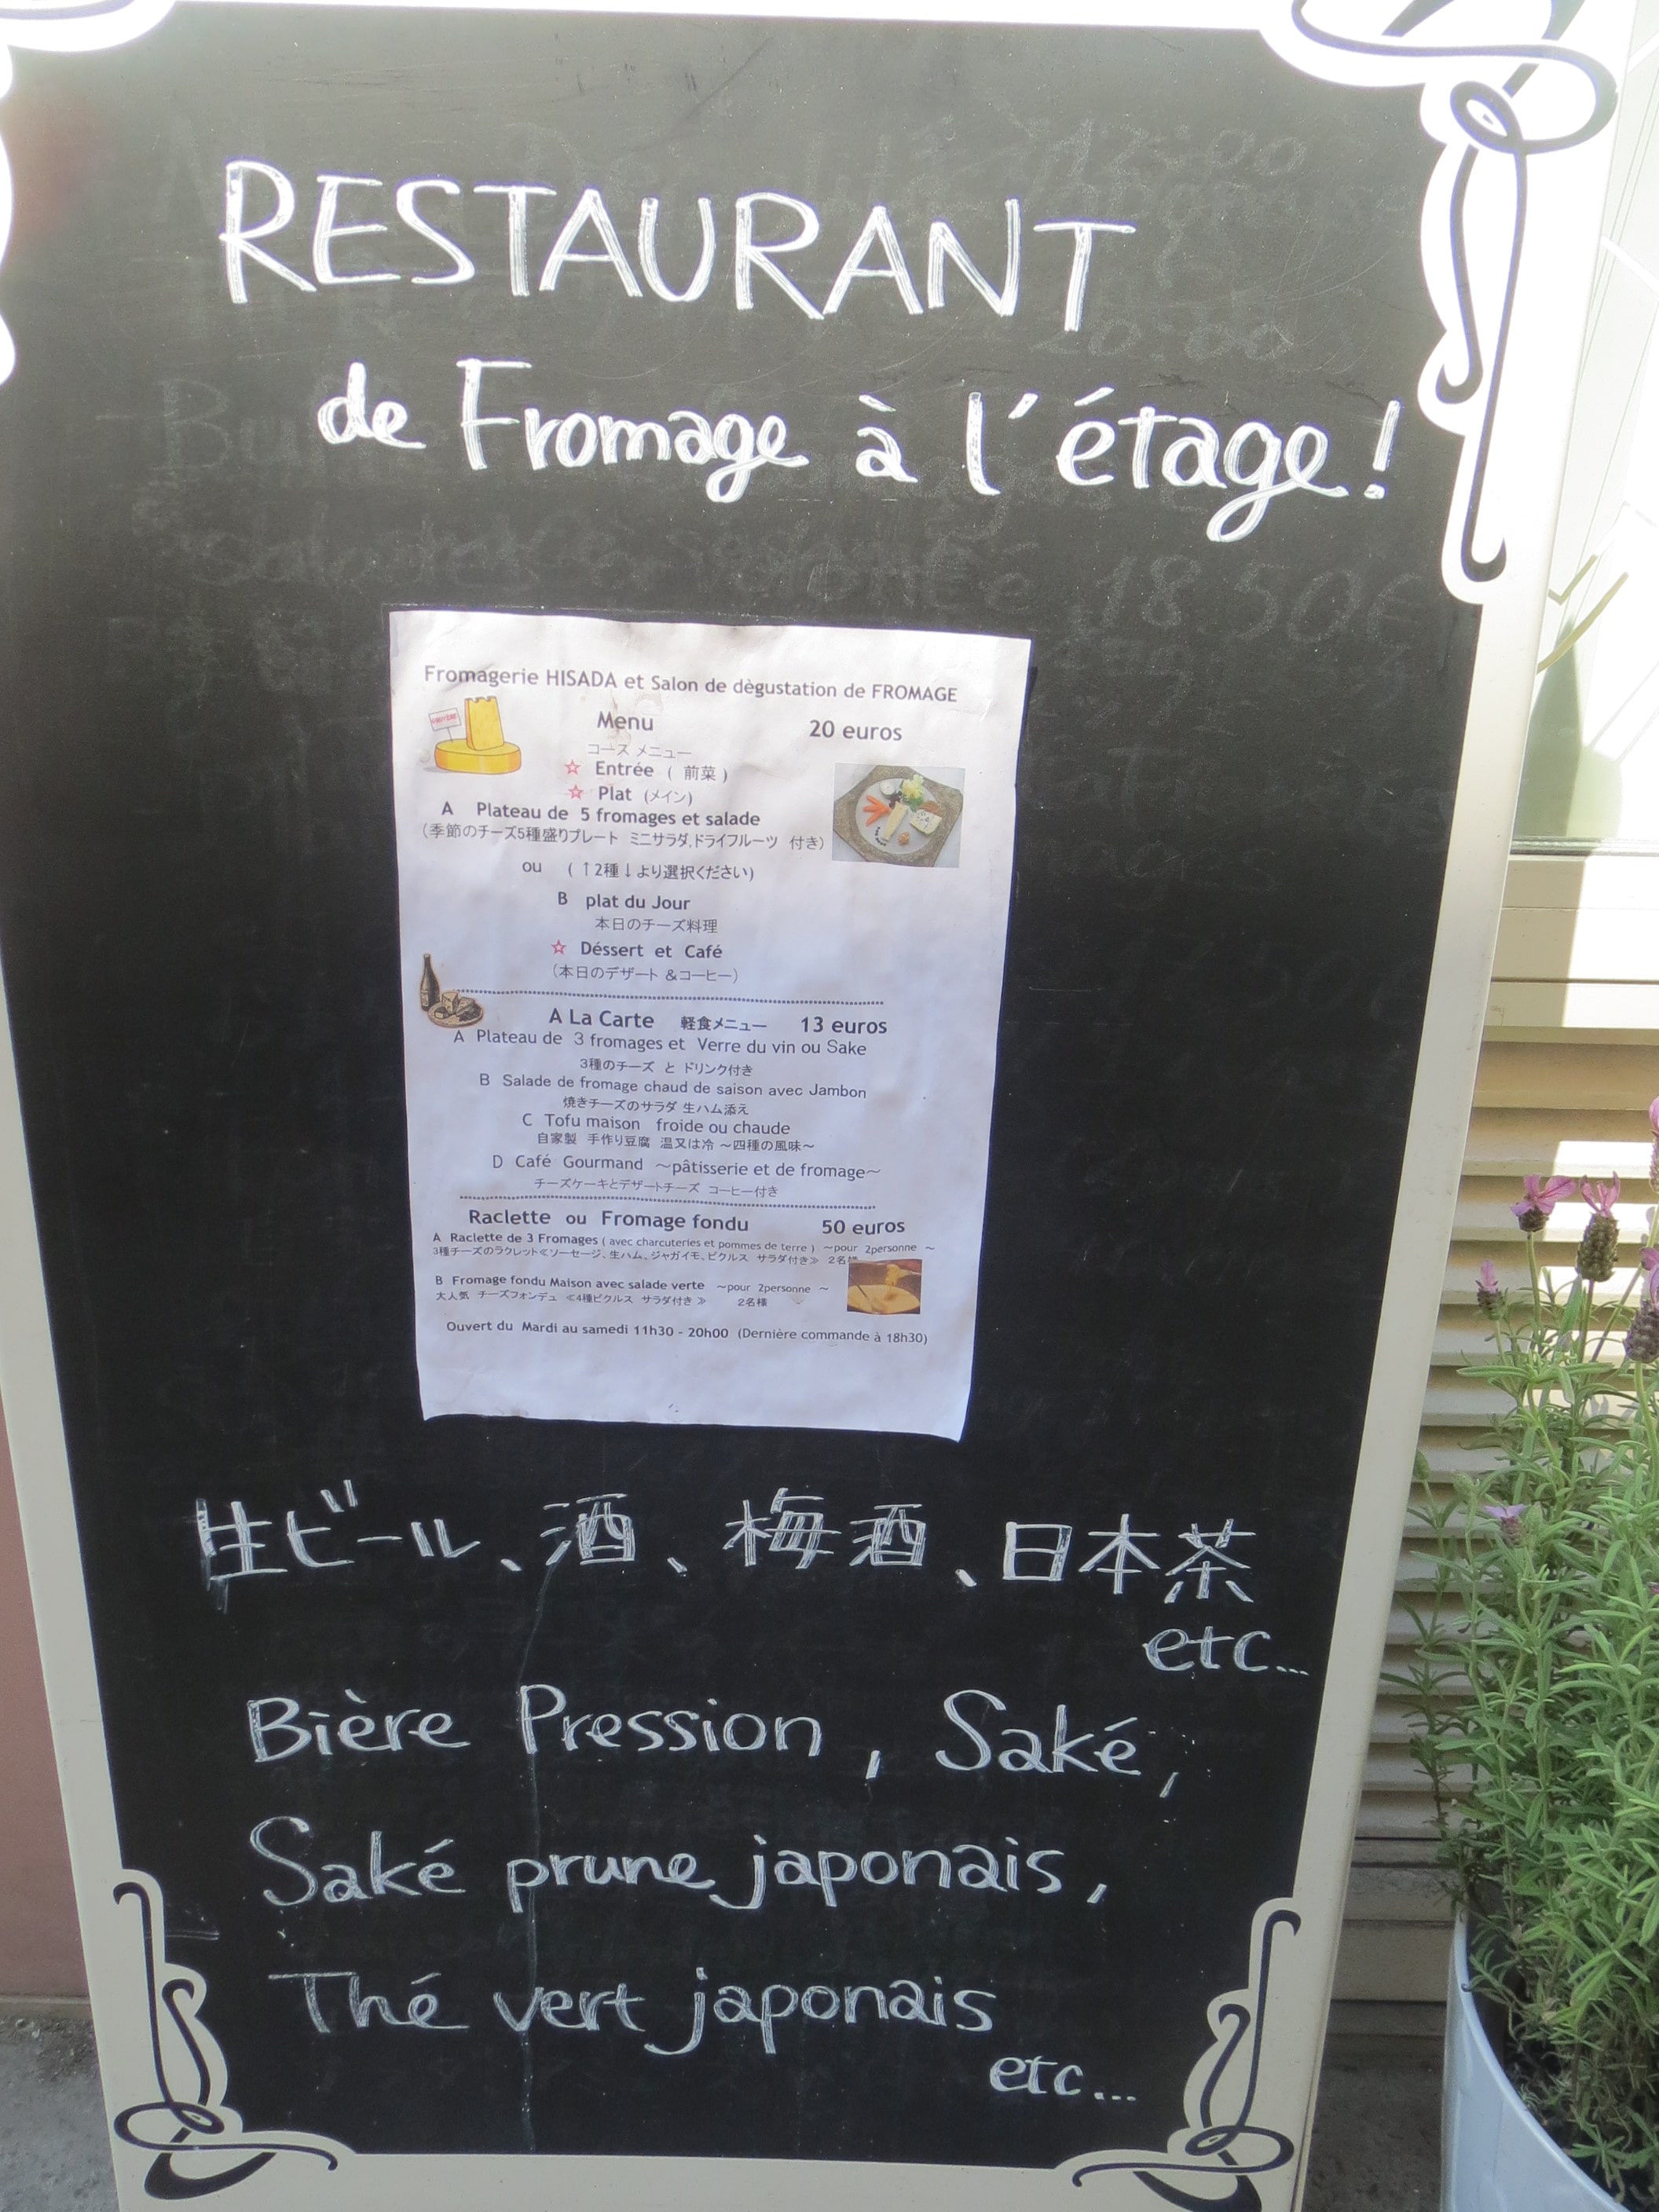 RESTAURANT
de Fromage à l'étage!
Fromagerie HISADA et Salon de dègustation de FROMAGE
Menu 20 euros
コース メニュー
☆ Entrée ( 前菜 )
☆ Plat (メイン)
A Plateau de 5 fromages et salade
(季節のチーズ5種盛りプレート ミニサラダ,ドライフルーツ 付き)
ou ( ↑2種↓より選択ください)
B plat du Jour
本日のチーズ料理
☆ Déssert et Café
(本日のデザート &コーヒー)
A La Carte 軽食メニュー 13 euros
A Plateau de 3 fromages et Verre du vin ou Sake
3種のチーズ と ドリンク付き
B Salade de fromage chaud de saison avec Jambon
焼きチーズのサラダ 生ハム添え
C Tofu maison froide ou chaude
自家製 手作り豆腐 温又は冷 ~四種の風味~
D Café Gourmand ~pâtisserie et de fromage~
チーズケーキとデザートチーズ コーヒー付き
Raclette ou Fromage fondu 50 euros
A Raclette de 3 Fromages ( avec charcuteries et pommes de terre ) ~pour 2personne ~
3種チーズのラクレット≪ソーセージ、生ハム、ジャガイモ、ピクルス サラダ付き≫ 2名様
B Fromage fondu Maison avec salade verte ~pour 2personne ~
大人気 チーズフォンデュ ≪4種ピクルス サラダ付き≫ 2名様
Ouvert du Mardi au samedi 11h30 - 20h00 (Dernière commande à 18h30)
生ビール、酒、梅酒、日本茶
etc...
Bière Pression, Saké,
Saké prune japonais,
Thé vert japonais
etc...